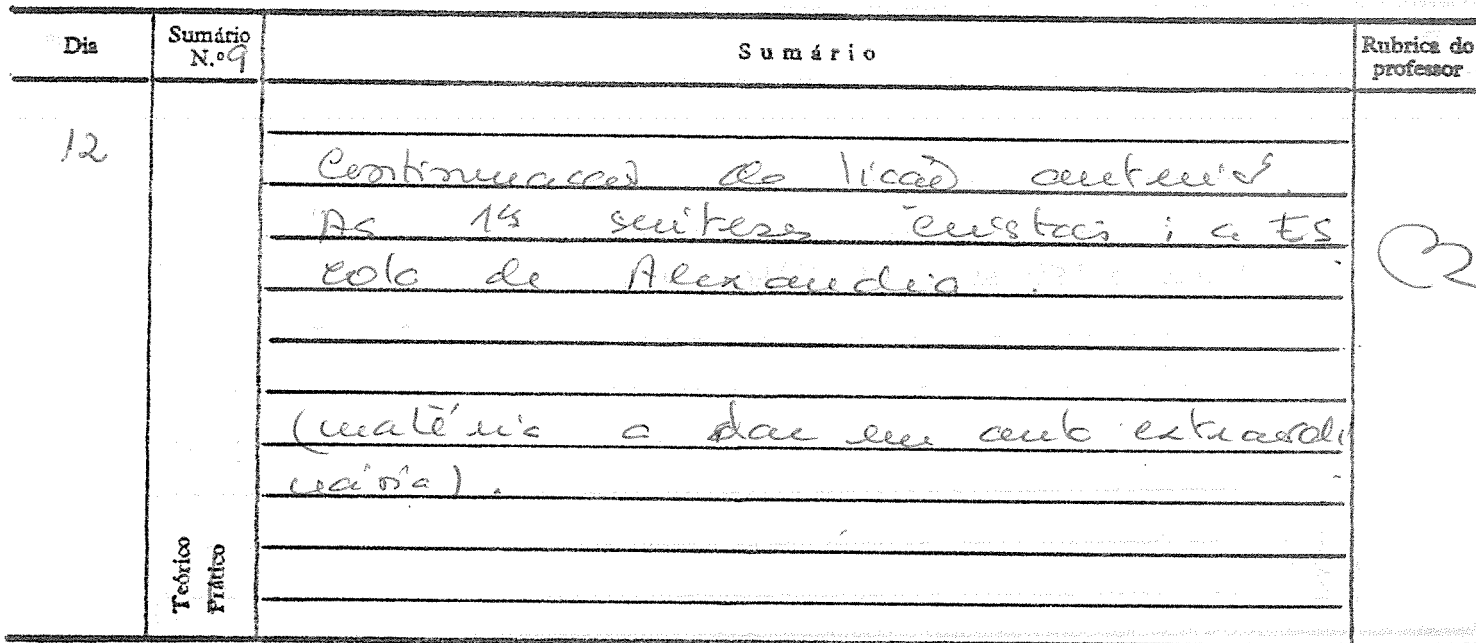 Dia
Sumário
N.º 9
Sumário
Rubrica do
professor
12
Continuação da lição anterior.
As 1ªs sínteses cristãs; a Es
cola de Alexandria.
(matéria a dar em aula extraordi
nária).
Teórico
Prático